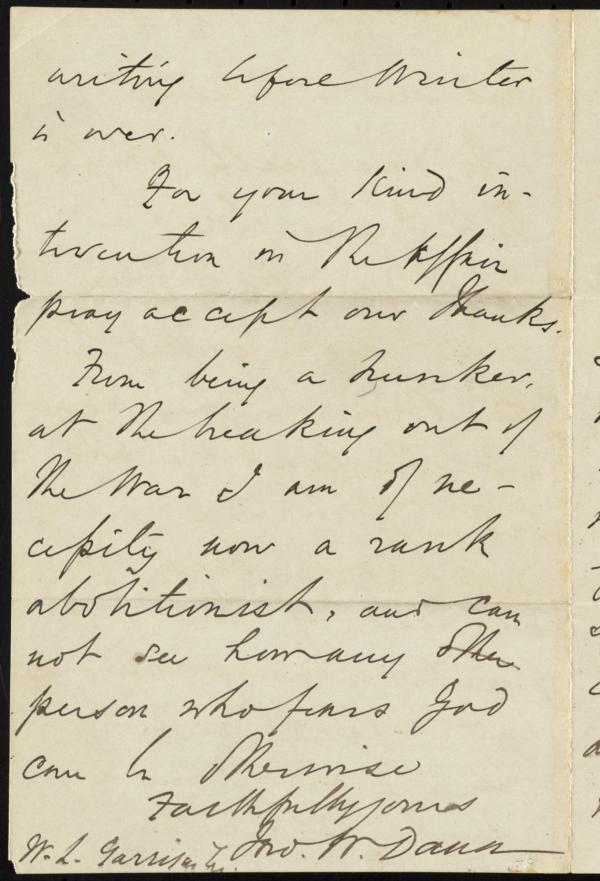 writing before Winter
is over.
For your kind in-
tervention in the Affair
pray accept our thanks.
From being a hunker,
at the breaking out of
the War I am of ne-
cessity now a rank
abolitionist, and can
not see how any other
person who fears God
can be otherwise
Faithfully yours
Jno. W.
W. L. Garrison